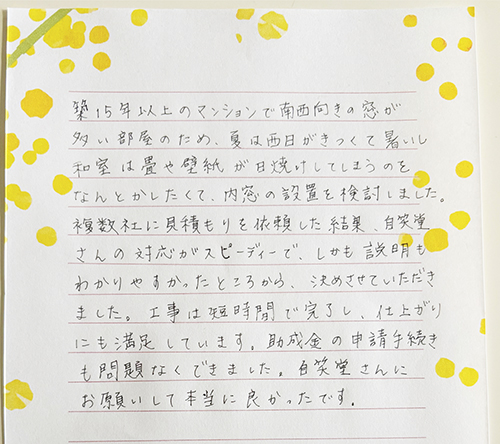 築15年以上のマンションで南西向きの窓が
多い部屋のため、夏は西日がきつくて暑いし
和室は畳や壁紙が日焼けしてしまうのを
なんとかしたくて、内窓の設置を検討しました。
複数社に見積もりを依頼した結果、自笑堂
さんの対応がスピーディーで、しかも説明も
わかりやすかったところから、決めさせていただき
ました。工事は短時間で完了し、仕上がり
にも満足しています。助成金の申請手続き
も問題なくできました。自笑堂さんに
お願いして本当に良かったです。